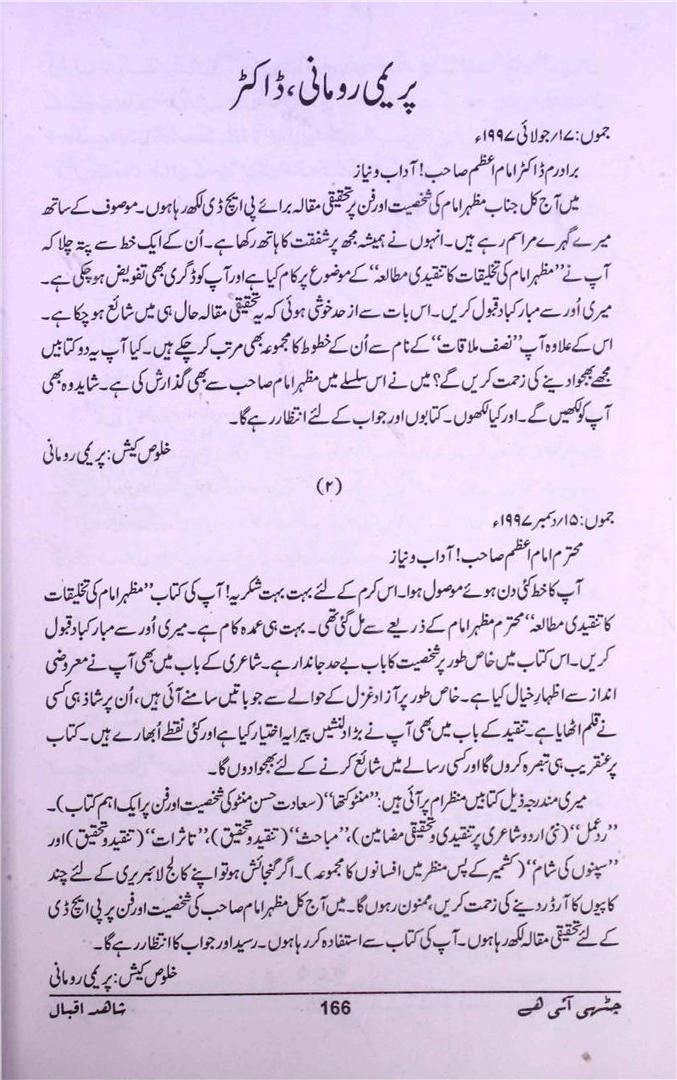 پریمی رومانی، ڈاکٹر
جموں: ۱۷؍ جولائی ۱۹۹۷ء
برادرم ڈاکٹر امام اعظم صاحب! آداب و نیاز
میں آج کل جناب مظہر امام کی شخصیت اور فن پر تحقیقی مقالہ برائے پی ایچ ڈی لکھ رہا ہوں۔ موصوف کے ساتھ
میرے گہرے مراسم رہے ہیں۔ انہوں نے ہمیشہ مجھ پر شفقت کا ہاتھ رکھا ہے۔ اُن کے ایک خط سے پتہ چلا کہ
آپ نے ’’مظہر امام کی تخلیقات کا تنقیدی مطالعہ‘‘ کے موضوع پر کام کیا ہے اور آپ کو ڈگری بھی تفویض ہوچکی ہے۔
میری اُور سے مبارکباد قبول کریں۔ اس بات سے از حد خوشی ہوئی کہ یہ تحقیقی مقالہ حال ہی میں شائع ہو چکا ہے۔
اس کے علاوہ آپ ’’نصف ملاقات‘‘ کے نام سے اُن کے خطوط کا مجموعہ بھی مرتب کر چکے ہیں۔ کیا آپ یہ دو کتابیں
مجھے بھجوا دینے کی زحمت کریں گے؟ میں نے اس سلسلے میں مظہر امام صاحب سے بھی گذارش کی ہے۔ شاید وہ بھی
آپ کو لکھیں گے۔ اور کیا لکھوں۔ کتابوں اور جواب کے لئے انتظار رہے گا۔
خلوص کیش: پریمی رومانی
(۲)
جموں: ۱۵؍ دسمبر ۱۹۹۷ء
محترم امام اعظم صاحب! آداب و نیاز
آپ کا خط کئی دن ہوئے موصول ہوا۔ اس کرم کے لئے بہت بہت شکریہ! آپ کی کتاب ’’مظہر امام کی تخلیقات
کا تنقیدی مطالعہ‘‘ محترم مظہر امام کے ذریعے سے مل گئی تھی۔ بہت ہی عمدہ کام ہے۔ میری اُور سے مبارکباد قبول
کریں۔ اس کتاب میں خاص طور پر شخصیت کا باب بے حد جاندار ہے۔ شاعری کے باب میں بھی آپ نے معروضی
انداز سے اظہارِ خیال کیا ہے۔ خاص طور پر آزاد غزل کے حوالے سے جو باتیں سامنے آئی ہیں، اُن پر شاذ ہی کسی
نے قلم اٹھایا ہے۔ تنقید کے باب میں بھی آپ نے بڑا دلنشیں پیرایہ اختیار کیا ہے اور کئی نقطے اُبھارے ہیں۔ کتاب
پر عنقریب ہی تبصرہ کروں گا اور کسی رسالے میں شائع کرنے کے لئے بھجوا دوں گا۔
میری مندرجہ ذیل کتابیں منظرِ عام پر آئی ہیں: ’’منٹو کتھا‘‘ (سعادت حسن منٹو کی شخصیت اور فن پر ایک اہم کتاب)۔
’’ردِ عمل‘‘ (نئی اردو شاعری پر تنقیدی و تحقیقی مضامین)، ’’مباحث‘‘ (تنقید و تحقیق)، ’’تاثرات‘‘ (تنقید و تحقیق) اور
’’سپنوں کی شام‘‘ (کشمیر کے پس منظر میں افسانوں کا مجموعہ)۔ اگر گنجائش ہو تو اپنے کالج لائبریری کے لئے چند
کاپیوں کا آرڈر دینے کی زحمت کریں، ممنون رہوں گا۔ میں آج کل مظہر امام صاحب کی شخصیت اور فن پر پی ایچ ڈی
کے لئے تحقیقی مقالہ لکھ رہا ہوں۔ آپ کی کتاب سے استفادہ کر رہا ہوں۔ رسید اور جواب کا انتظار رہے گا۔
خلوص کیش: پریمی رومانی
چٹھی آئی ھے 166 شاھد اقبال